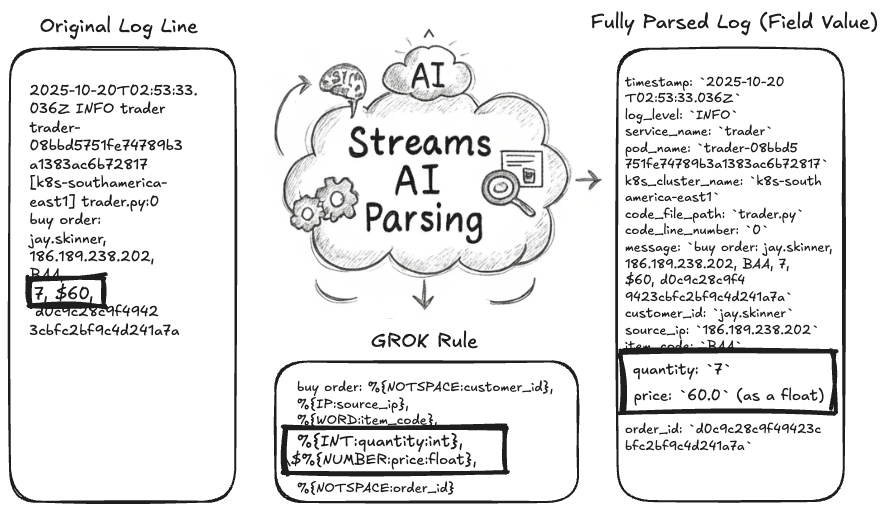 Original Log Line
2025-10-20T02:53:33.
036Z INFO trader
trader-
08bbd5751fe74789b3
a1383ac6b72817
[k8s-southamerica-
east1] trader.py:0
buy order:
jay.skinner,
186.189.238.202,
BAA,
7, $60,
d0c9c28c9f4942
3cbfc2bf9c4d241a7a
AI
Streams
AI
Parsing
GROK Rule
buy order: %{NOTSPACE:customer_id},
%{IP:source_ip},
%{WORD:item_code},
%{INT:quantity:int},
\$%{NUMBER:price:float},
%{NOTSPACE:order_id}
Fully Parsed Log (Field Value)
timestamp: `2025-10-20
T02:53:33.036Z`
log_level: `INFO`
service_name: `trader`
pod_name: `trader-08bbd5
751fe74789b3a1383ac6b72817`
k8s_cluster_name: `k8s-south
america-east1`
code_file_path: `trader.py`
code_line_number: `0`
message: `buy order: jay.skinner,
186.189.238.202, BAA, 7,
$60, d0c9c28c9f4
9423cbfc2bf9c4d241a7a`
customer_id: `jay.skinner`
source_ip: `186.189.238.202`
item_code: `BAA`
quantity: `7`
price: `60.0` (as a float)
order_id: `d0c9c28c9f49423c
bfc2bf9c4d241a7a`